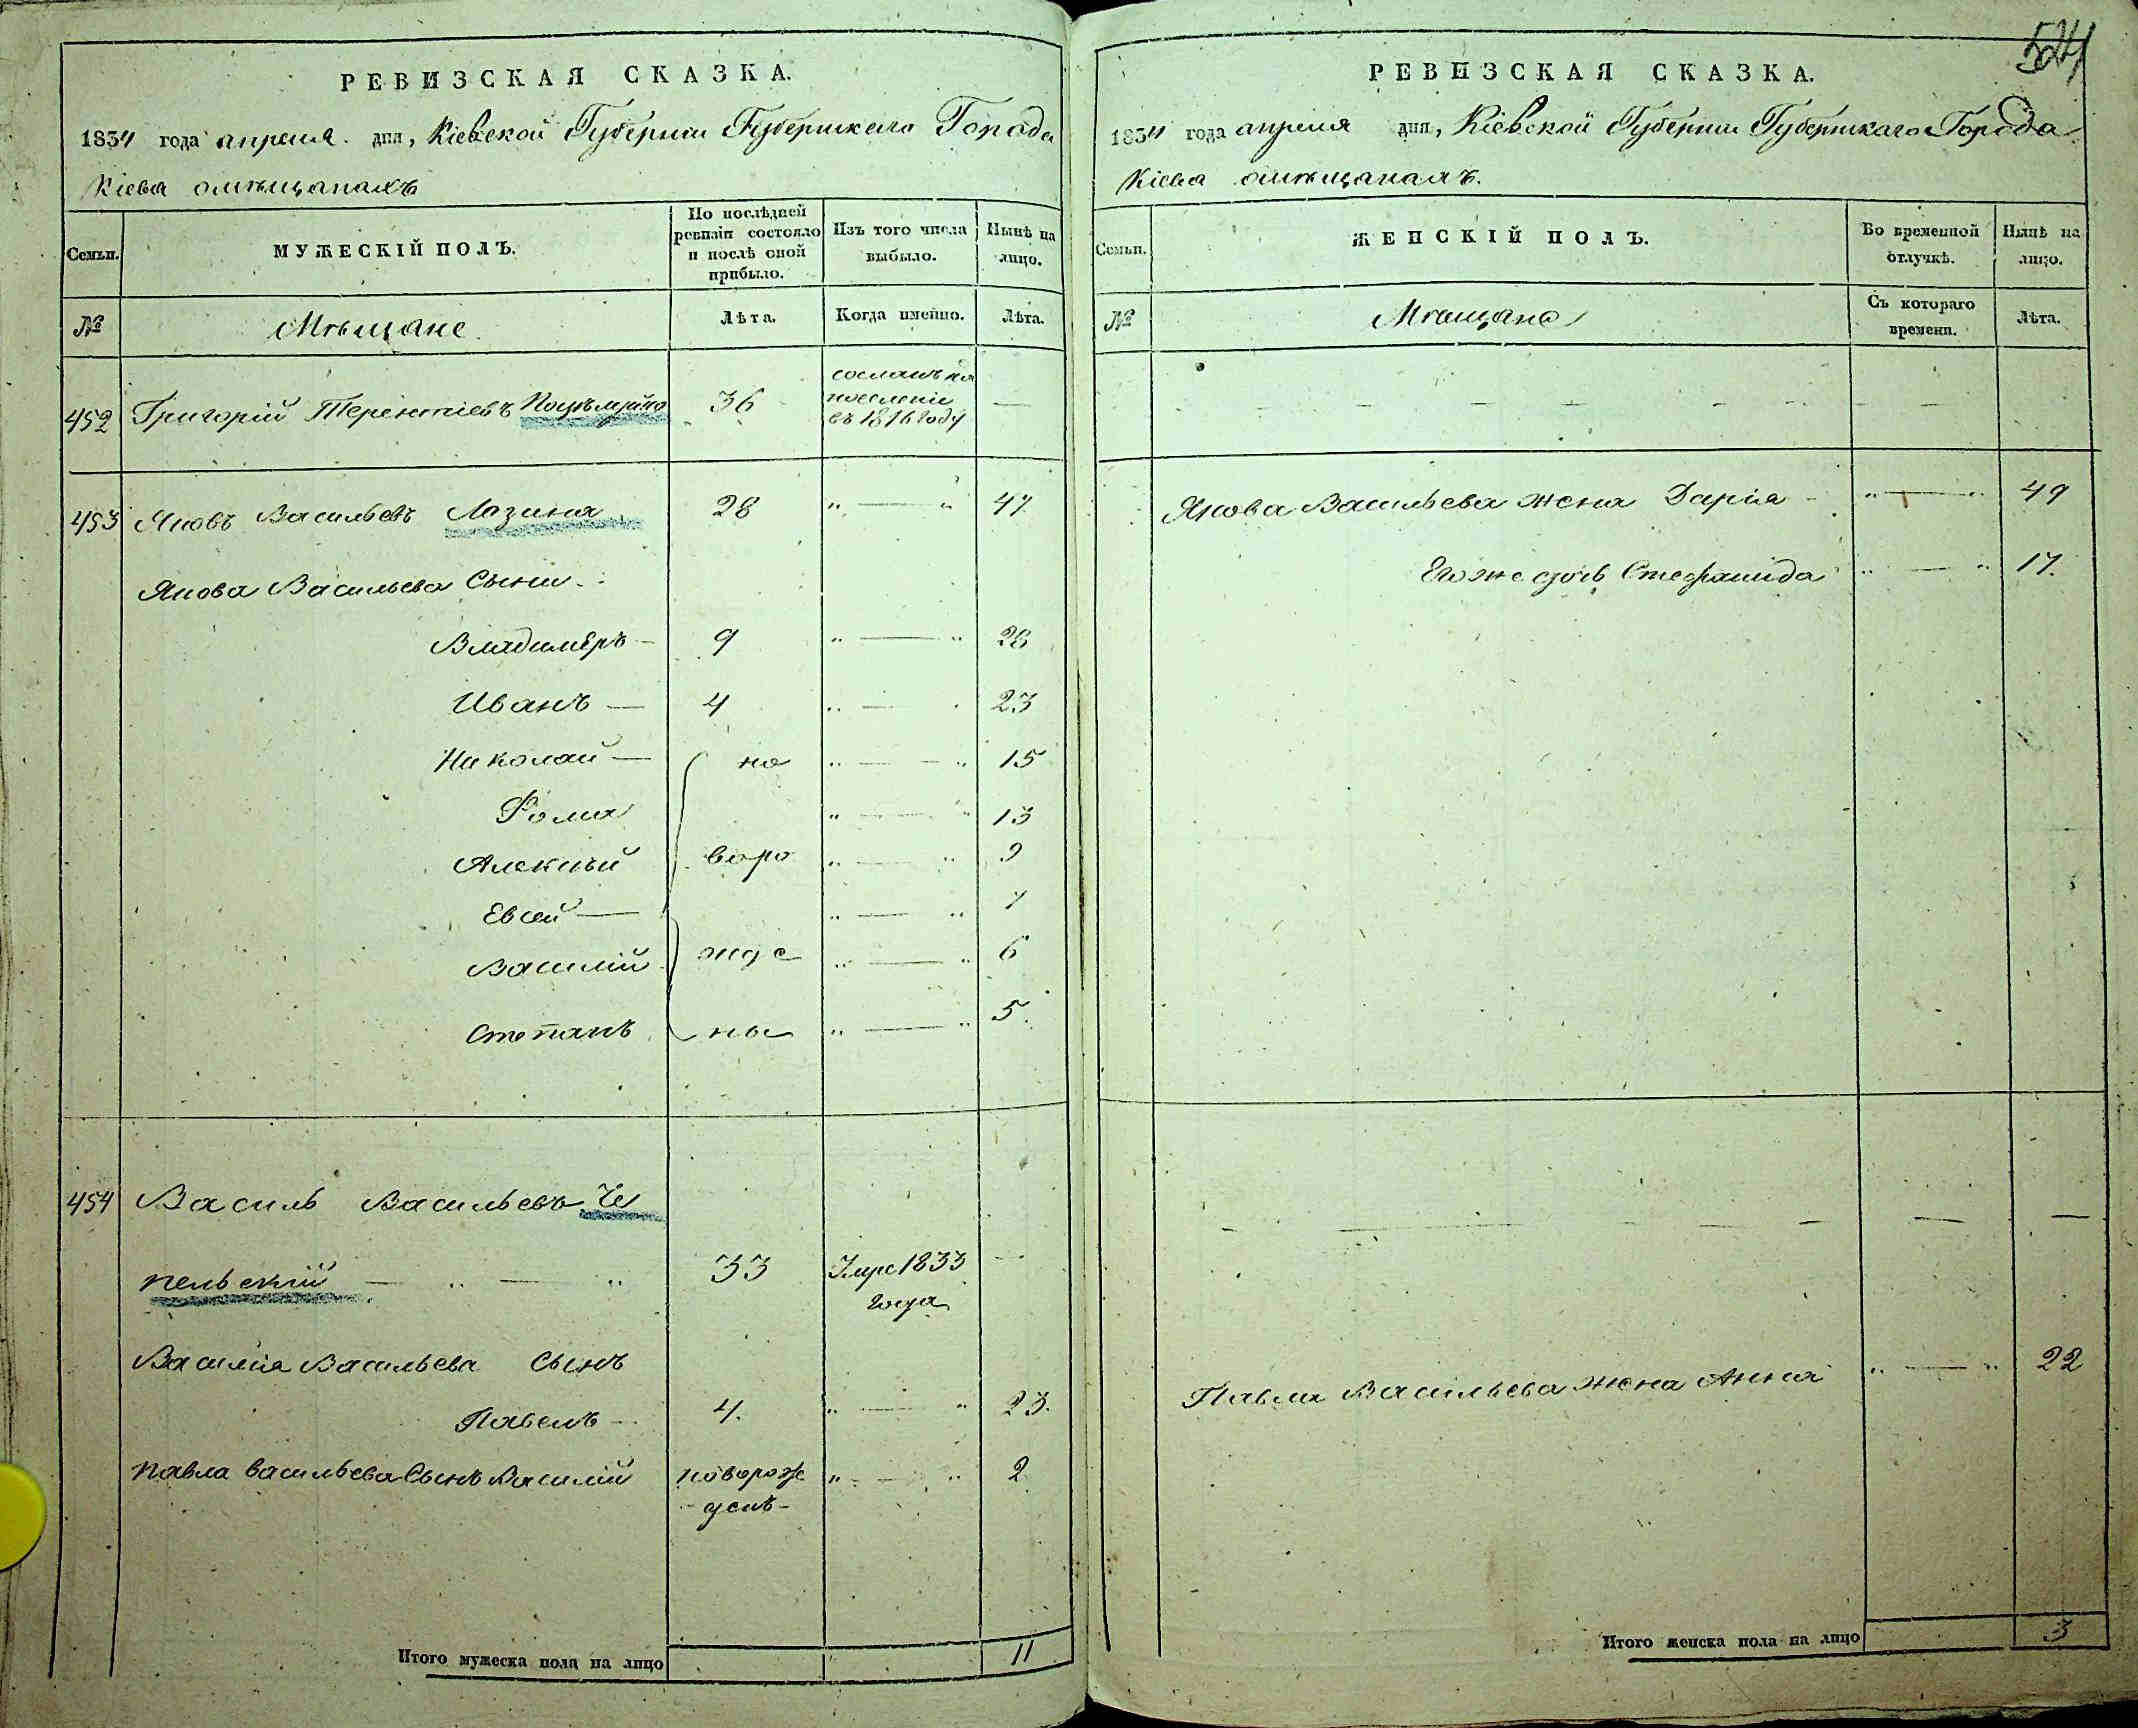 РЕВИЗСКАЯ СКАЗКА.
1834 года апреля дня, Кіевской Губерніи Губернскаго Города
Кіева омѣщанахъ
Семьи.
МУЖЕСКІЙ ПОЛЪ.
По послѣдней ревизіи состояло и послѣ оной прибыло.
Изъ того числа выбыло.
Нынѣ на лицо.
№
Мѣщане
Лѣта.
Когда имейно.
Лѣта.
452 Григорій Терентіевъ 36 сосланъ на —
поселеніе
въ 1816 году
453 Яковъ Васильевъ Лазина 28 „ — „ 47
Якова Васильева Сыни
Владимеръ — 9 „ — „ 28
Иванъ — 4 „ — „ 23
Николай — но „ — „ 15
Фома „ — „ 13
Алексѣй воро „ — „ 9
Евсей — „ — „ 7
Василій жде „ — „ 6
Степанъ ны „ — „ 5.
454 Василь Васильевъ Че
пельскій — „ — „ 33 Умре 1833 —
года
Василія Васильева Сынъ
Павелъ — 4. „ — „ 23.
Павла Васильева Сынъ Василій новорож „ — „ 2
денъ
Итого мужеска пола на лицо 11
524
РЕВИЗСКАЯ СКАЗКА.
1834 года апреля дня, Кіевской Губерніи Губернскаго Города
Кіева омѣщанахъ.
Семьи.
ЖЕНСКІЙ ПОЛЪ.
Во временной отлучкѣ.
Нынѣ на лицо.
№
Мѣщане
Съ котораго времени.
Лѣта.
Якова Васильева жена Дарія — „ — „ 49
Его же дочь Стефанида „ — „ 17.
Павла Васильева жена Анна „ — „ 22
Итого женска пола на лицо 3